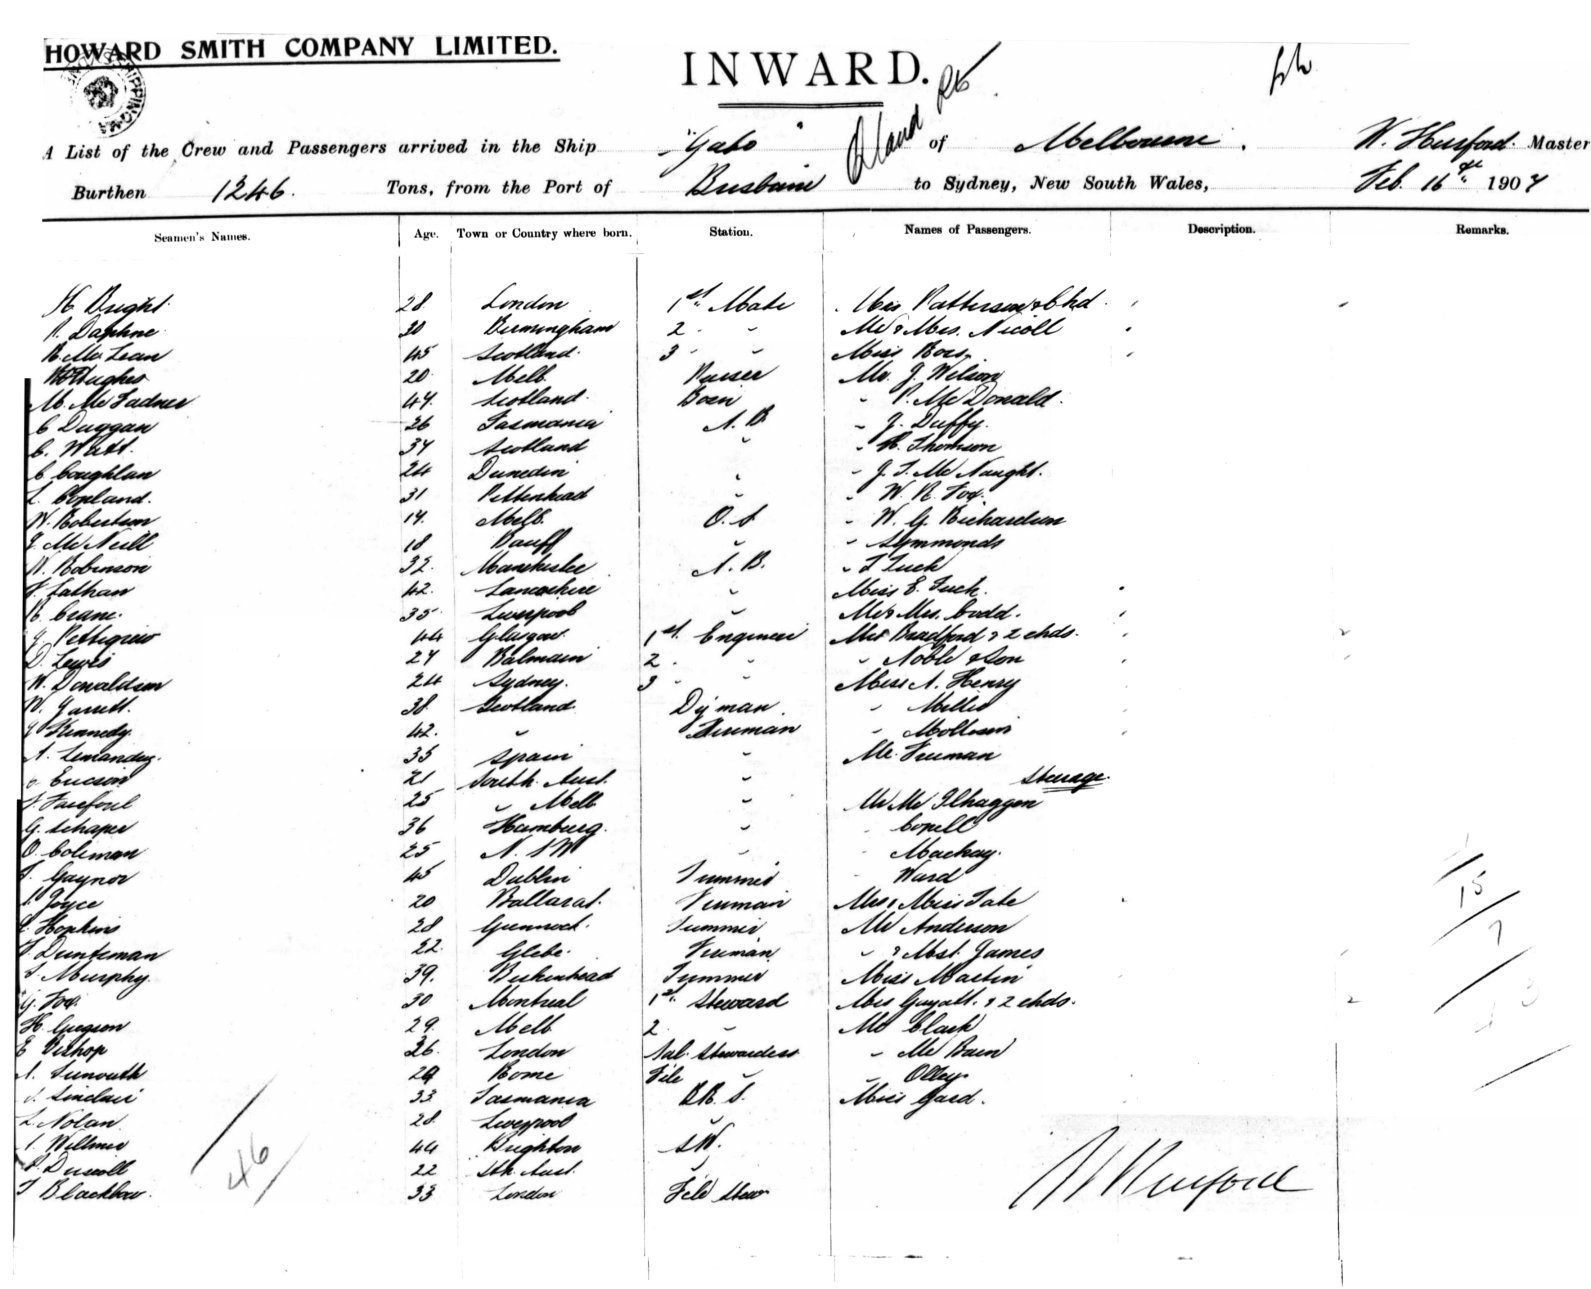 HOWARD SMITH COMPANY LIMITED.
INWARD.
A List of the Crew and Passengers arrived in the Ship "Gabo" of Melbourne. W. Hurford. Master
Burthen 1246. Tons, from the Port of Brisbane to Sydney, New South Wales, Feb. 16th 1907
Seamen's Names. Age. Town or Country where born. Station. Names of Passengers. Description. Remarks.
H. Bright. 28 London 1st Mate Mrs Patterson & Chd.
R. Daphne 30 Birmingham 2 " " Mr & Mrs. Nicoll
McLean 45 Scotland. 3 " " Miss
Hughes 20 Melb. Mr. J. Wilson
M. McFadner 47. Scotland. Bosn " P. McDonald.
C Duggan 26 Tasmania A. B. " J. Duffy.
C. Watt. 34 Scotland " " Thomson
C Coughlan 24 Dunedin " " J. T. McNaught.
L. Copland. 31 " " W. R. Fox.
W. Robertson 19. Melb. O. S. " W. G. Richardson
J. McNeill 18 Banff " " Symmonds
Robinson 32. Manchester A. B. " T Tuck
Lathan 42. Lancashire " Miss E. Tuck.
Crane. 35 Liverpool " Mr & Mrs. Codd.
J. Pettigrew 44 Glasgow. 1st. Engineer Mrs Bradford & 2 chds.
D. Lewis 27 Balmain 2. " " Noble & Son
W. Donaldson 24 Sydney. 3 " " Miss A. Henry
W. Garrett. 38. Scotland D'y'man " Miller
J Kennedy. 42. " Fireman "
A. 35 Spain " Mr. Freeman
Ericson 21 South Aust. " Steerage.
25 " Melb " Mr McIlhaggon
G. Schaper 36 Hamburg. " Copell
O. Coleman 25 N. S W " Mackay.
Gaynor 45 Dublin Trimmer Ward
Joyce 20 Ballarat. Fireman Mrs & Miss Tate
Hopkins 28 Greenock. Trimmer Mr Anderson
Dunteman 22. Glebe. Fireman " & Mst. James
Murphy. 39. Birkenhead Trimmer Miss Martin
G. Fox. 30 Montreal 1st. Steward Mrs Guyatt. & 2 chds.
H. Gregson 29. Melb 2 " Mr Clark
E Bishop 26. London Sal. Stewardess " McBain
29 Rome " Olley
Sinclair 33 Tasmania B.R. S. Miss Gard.
L. Nolan. 28. Liverpool "
Willmer 44 Brighton S.W.
Driscoll 22 Sth Aust. "
T Blackbow. 33 London Stew
46
15
7
W Hurford